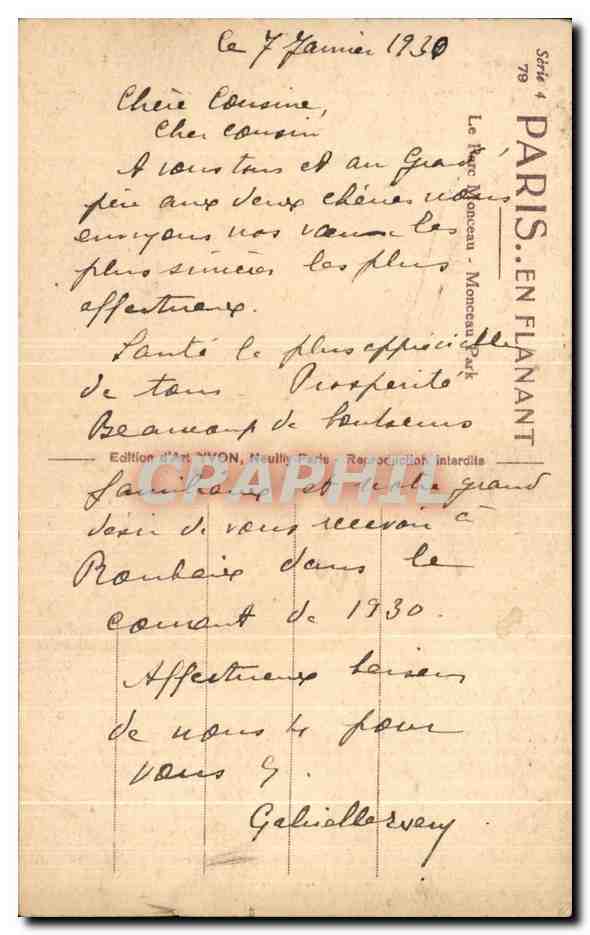 le 7 Janvier 1930
Chère Cousine,
Cher cousin
A vous tous et au Grand
père aux deux chères nous
envoyons nos voeux les
plus sincères les plus
affectueux.
Santé la plus appréciable
de tous Prosperité
Beaucoup de bonheurs
familiaux et notre grand
désir de vous recevoir à
Roubaix dans le
courant de 1930.
Affectueux baisers
de nous 4 pour
vous
Série 4
79
PARIS.. EN FLANANT
Le Parc Monceau - Monceau Park
Edition d'Art YVON, Neuilly-Paris - Reproduction interdite
CPAPHIL